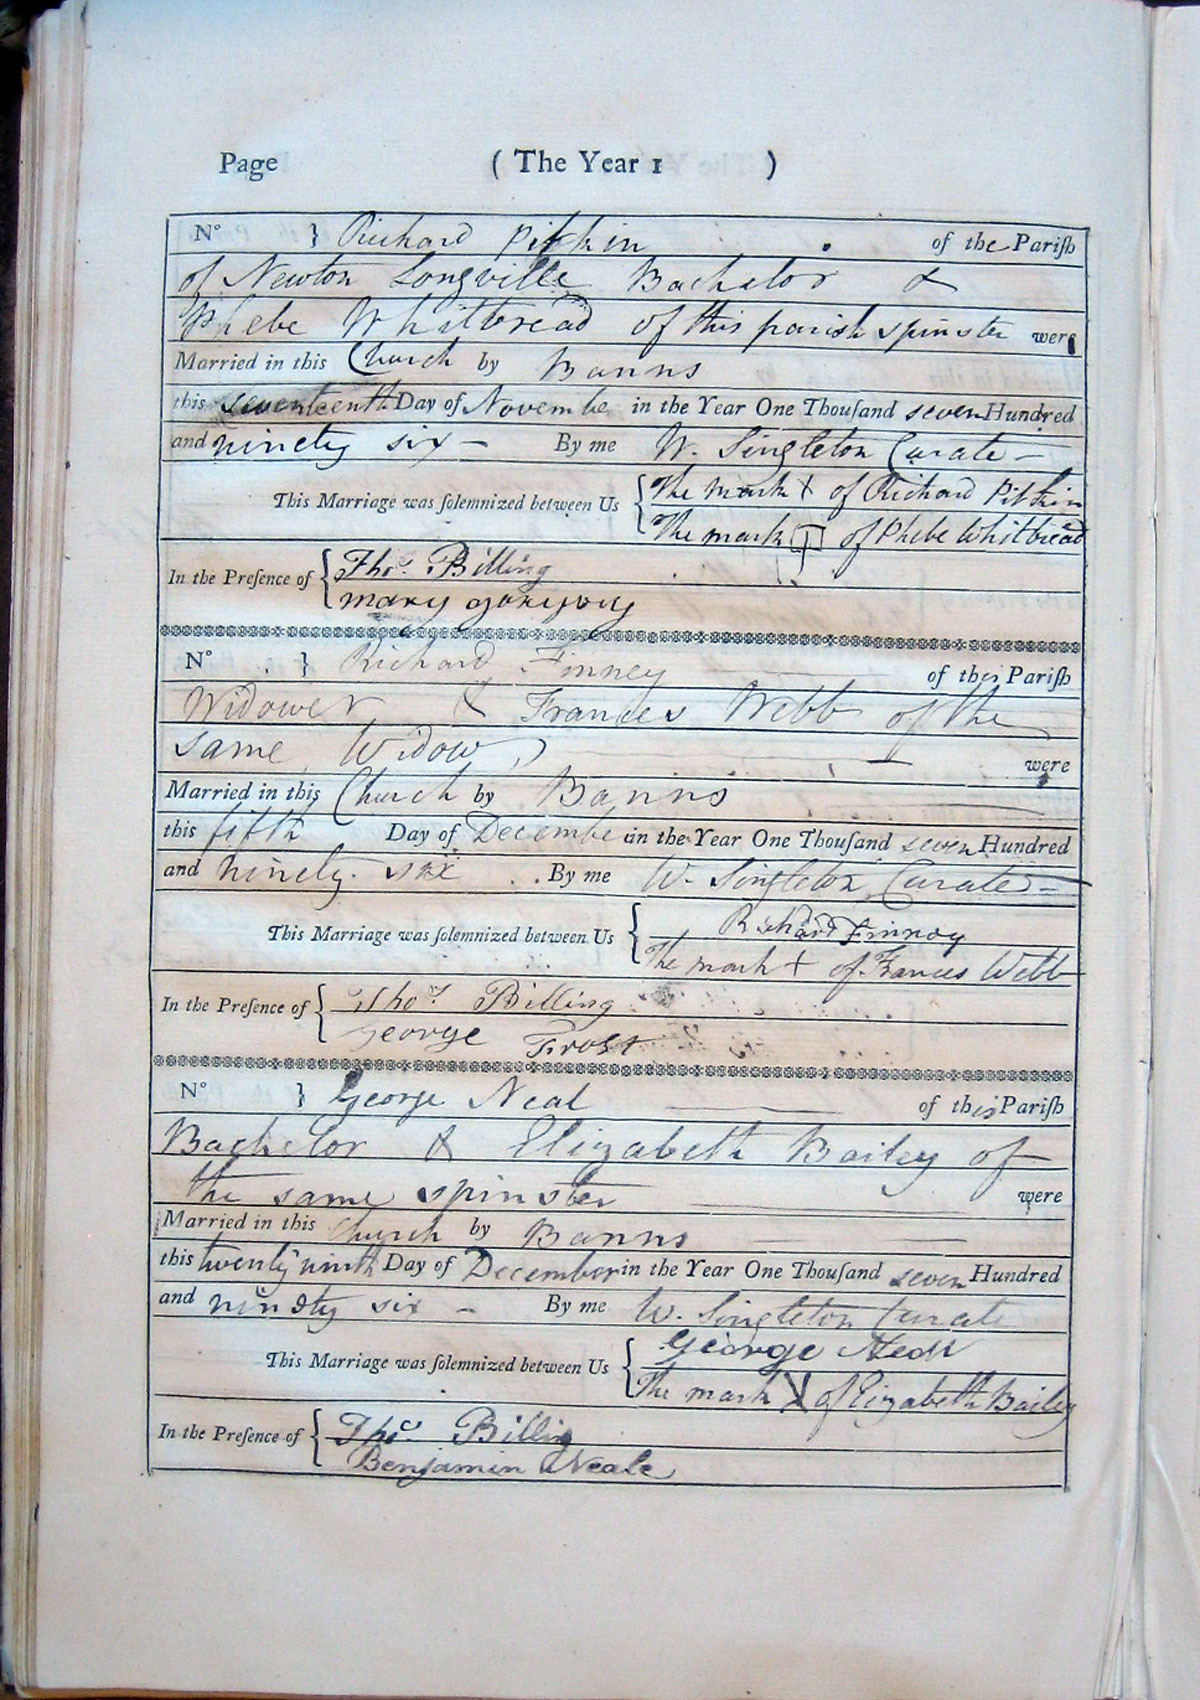 Page ( The Year 1 )
No } Richard Pitkin of the Pariſh
of Newton Longville Bachelor &
Phebe Whitbread of this parish spinster were
Married in this Church by Banns
this seventeenth Day of Novembe in the Year One Thouſand seven Hundred
and ninety six - By me W. Singleton Curate -
This Marriage was ſolemnized between Us { The mark + of Richard Pitkin
The mark of Phebe Whitbread
In the Preſence of { Thos. Billing
mary
No } Richard Finney of this Pariſh
Widower & Frances Webb of the
same Widow were
Married in this Church by Banns
this fifth Day of Decembe in the Year One Thouſand seven Hundred
and ninety six By me W. Singleton Curate -
This Marriage was ſolemnized between Us { Richard Finney
The mark + of Frances Webb
In the Preſence of { Thos. Billing
George Frost
No } George Neal of this Pariſh
Bachelor & Elizabeth Bailey of
the same spinster were
Married in this Church by Banns
this twenty ninth Day of December in the Year One Thouſand seven Hundred
and ninety six - By me W. Singleton Curate
This Marriage was ſolemnized between Us { George Neal
The mark X of Elizabeth Bailey
In the Preſence of { Thos. Billing
Benjamin Neale